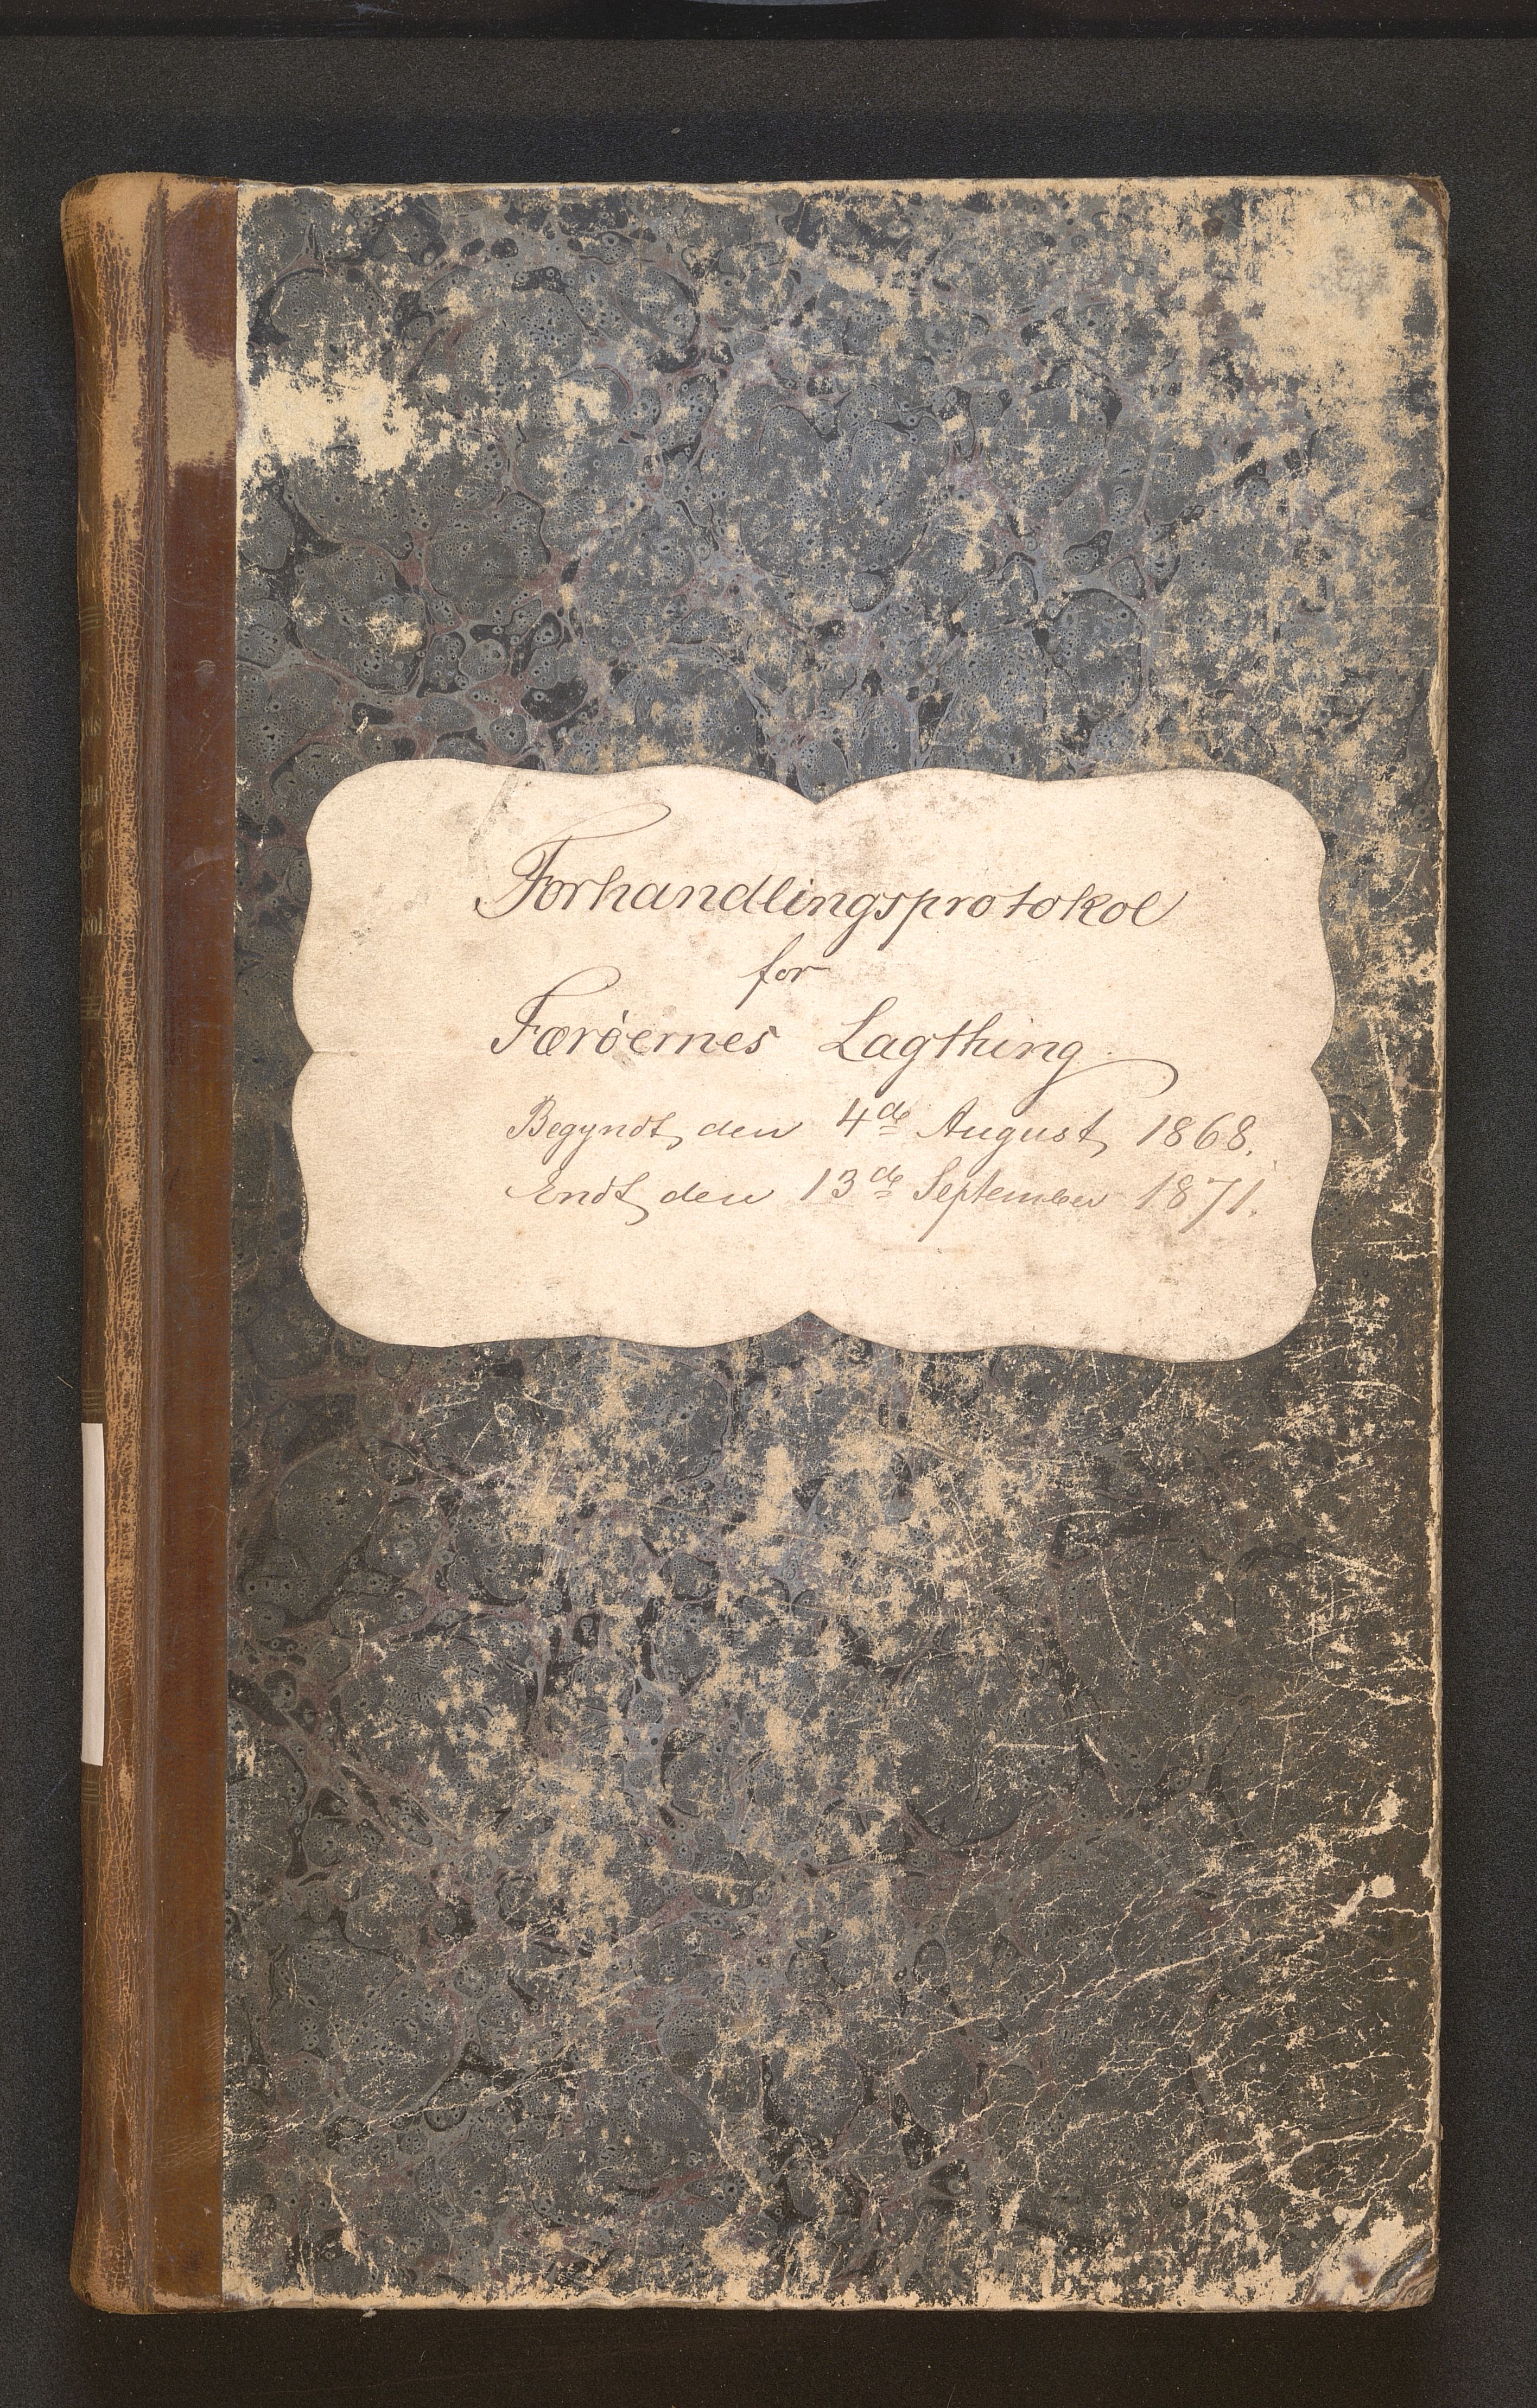 Forhandlingsprotokol
for
Færöernes Lagthing.
Begyndt den 4de August 1868.
Endt den 13de September 1871.